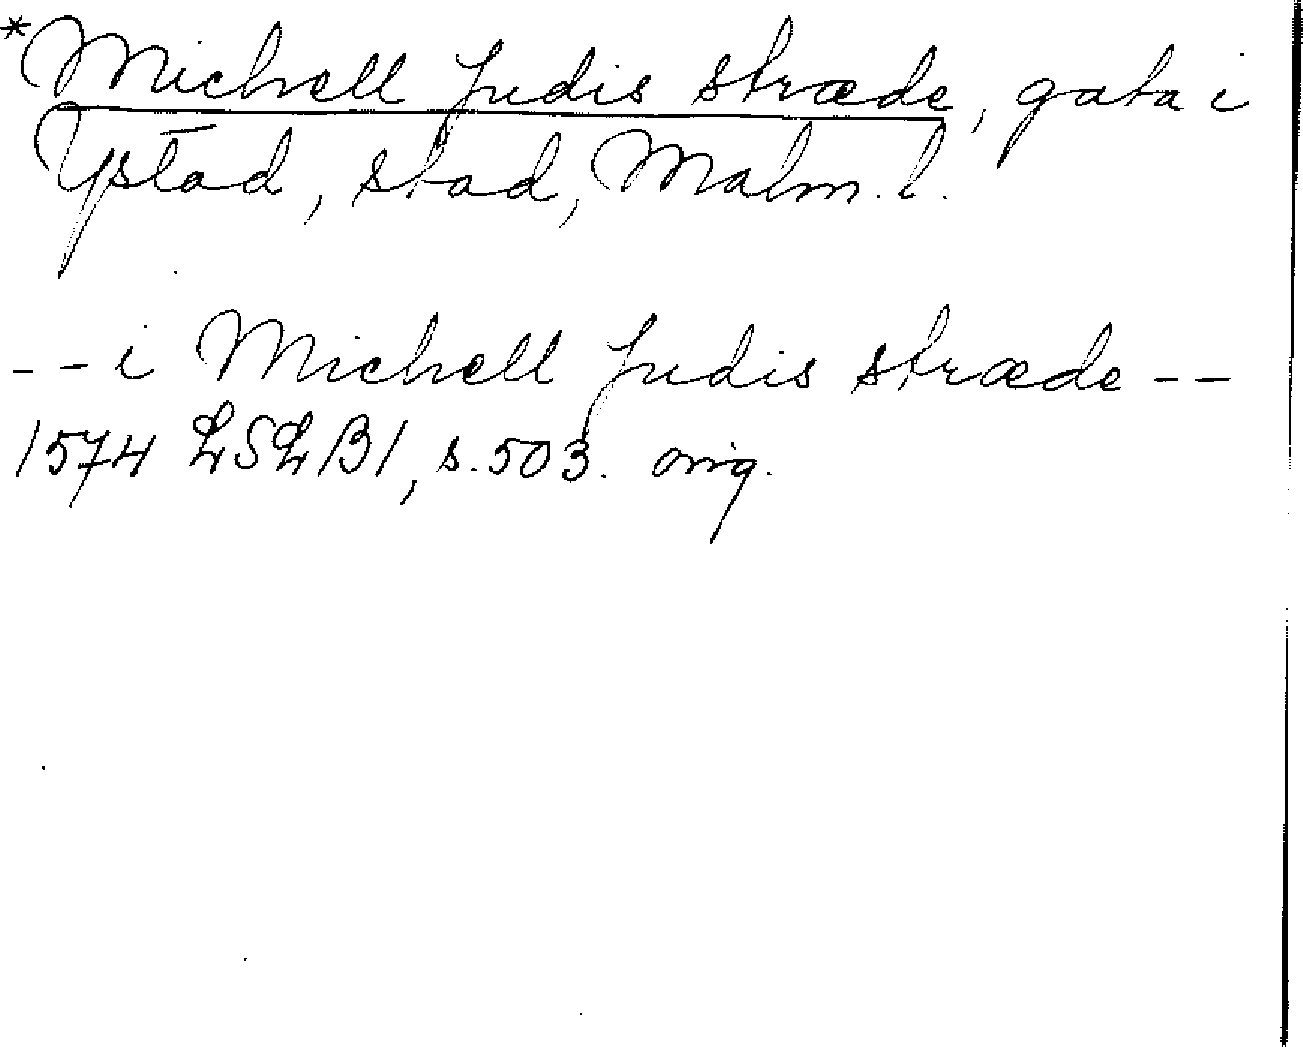 *Michell Judis stræde, gata i
Ystad, stad, Malm. l.
-- i Michell Judis stræde --
1574 LSLB1, s. 503. orig.